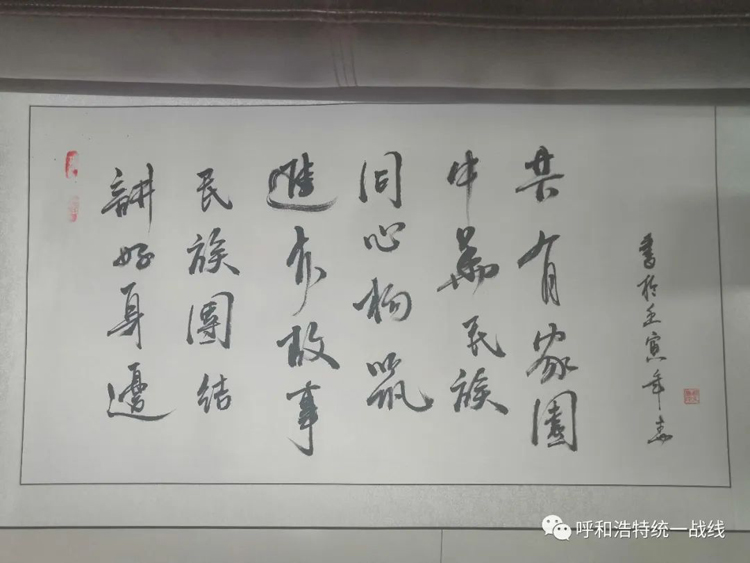 講好身邊
民族團結
進步故事
同心构筑
中華民族
共有家園
書於壬寅年春
呼和浩特统一战线